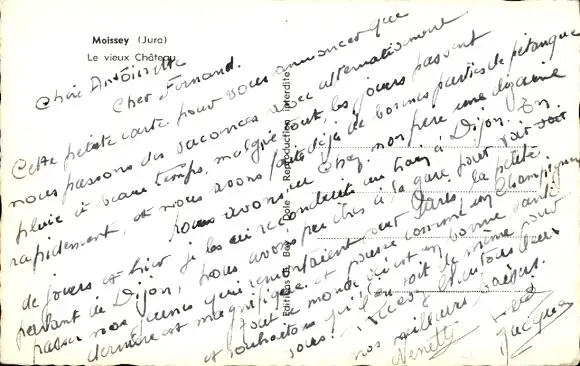 Moissey (Jura)
Le vieux Château
Editions B. Bey - Dole - Reproduction interdite
Chère Antoinette
Cher Fernand.
Cette petite carte pour vous annoncer que
nous passons des vacances avec alternativement
pluie et beau temps, malgré tout, les jours passent
rapidement, et nous avons fait déjà de bonnes parties de pétanque
nous avons eu chez mon père une dizaine
de jours et hier je les ai reconduits au train à Dijon. En
partant de Dijon, nous avons peu être à la gare pour voir
passer nos jeunes qui remontaient sur Paris, la petite
dernière est magnifique et pousse comme un Champignon
tout le monde ici est en bonne santé
et souhaitons qu'il en soit de même pour
vous. Recevez de tous
nos meilleurs baisers.
Nenette
Jacques